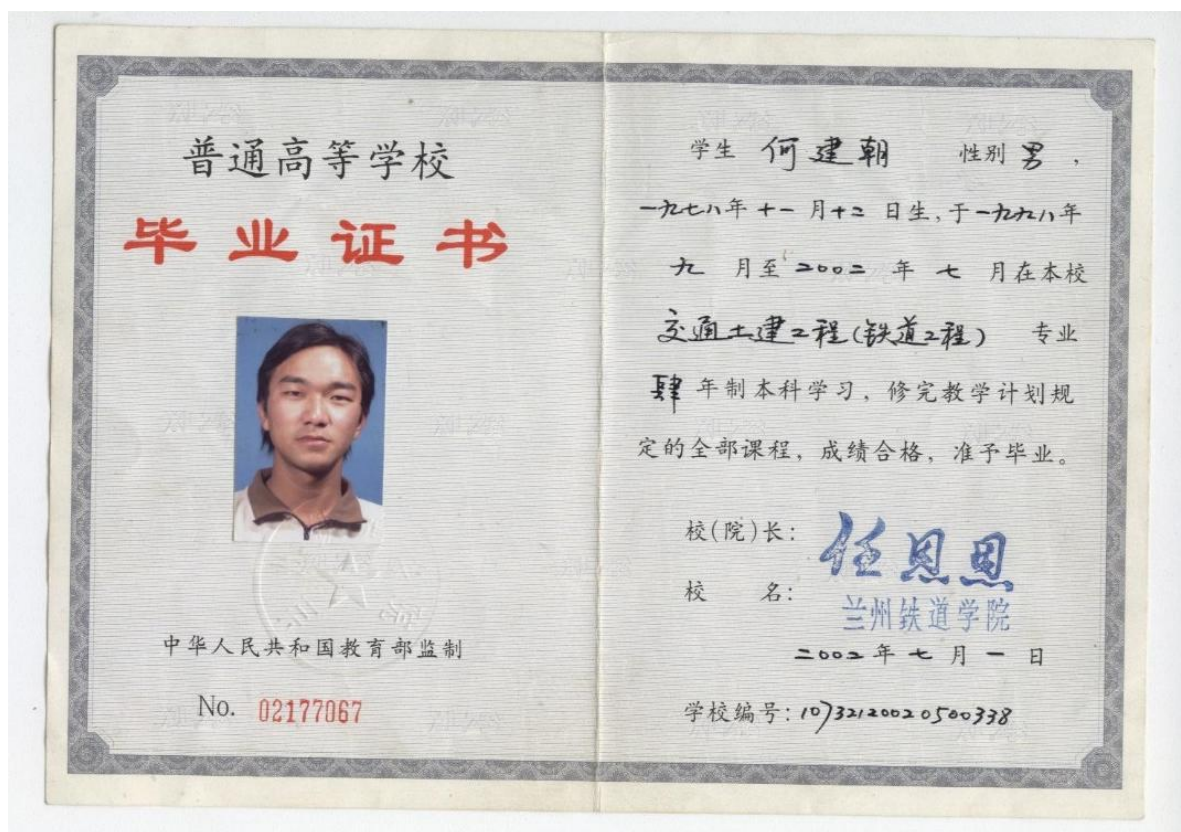 普通高等学校
毕业证书
中华人民共和国教育部监制
No. 02177067
学生 何建朝 性别 男，
一九七八年十一月十二日生，于一九九八年
九月至二〇〇二年七月在本校
交通土建工程(铁道工程) 专业
肆年制本科学习，修完教学计划规
定的全部课程，成绩合格，准予毕业。
校(院)长： 任恩恩
校名： 兰州铁道学院
二〇〇二年七月一日
学校编号：10732120020500338